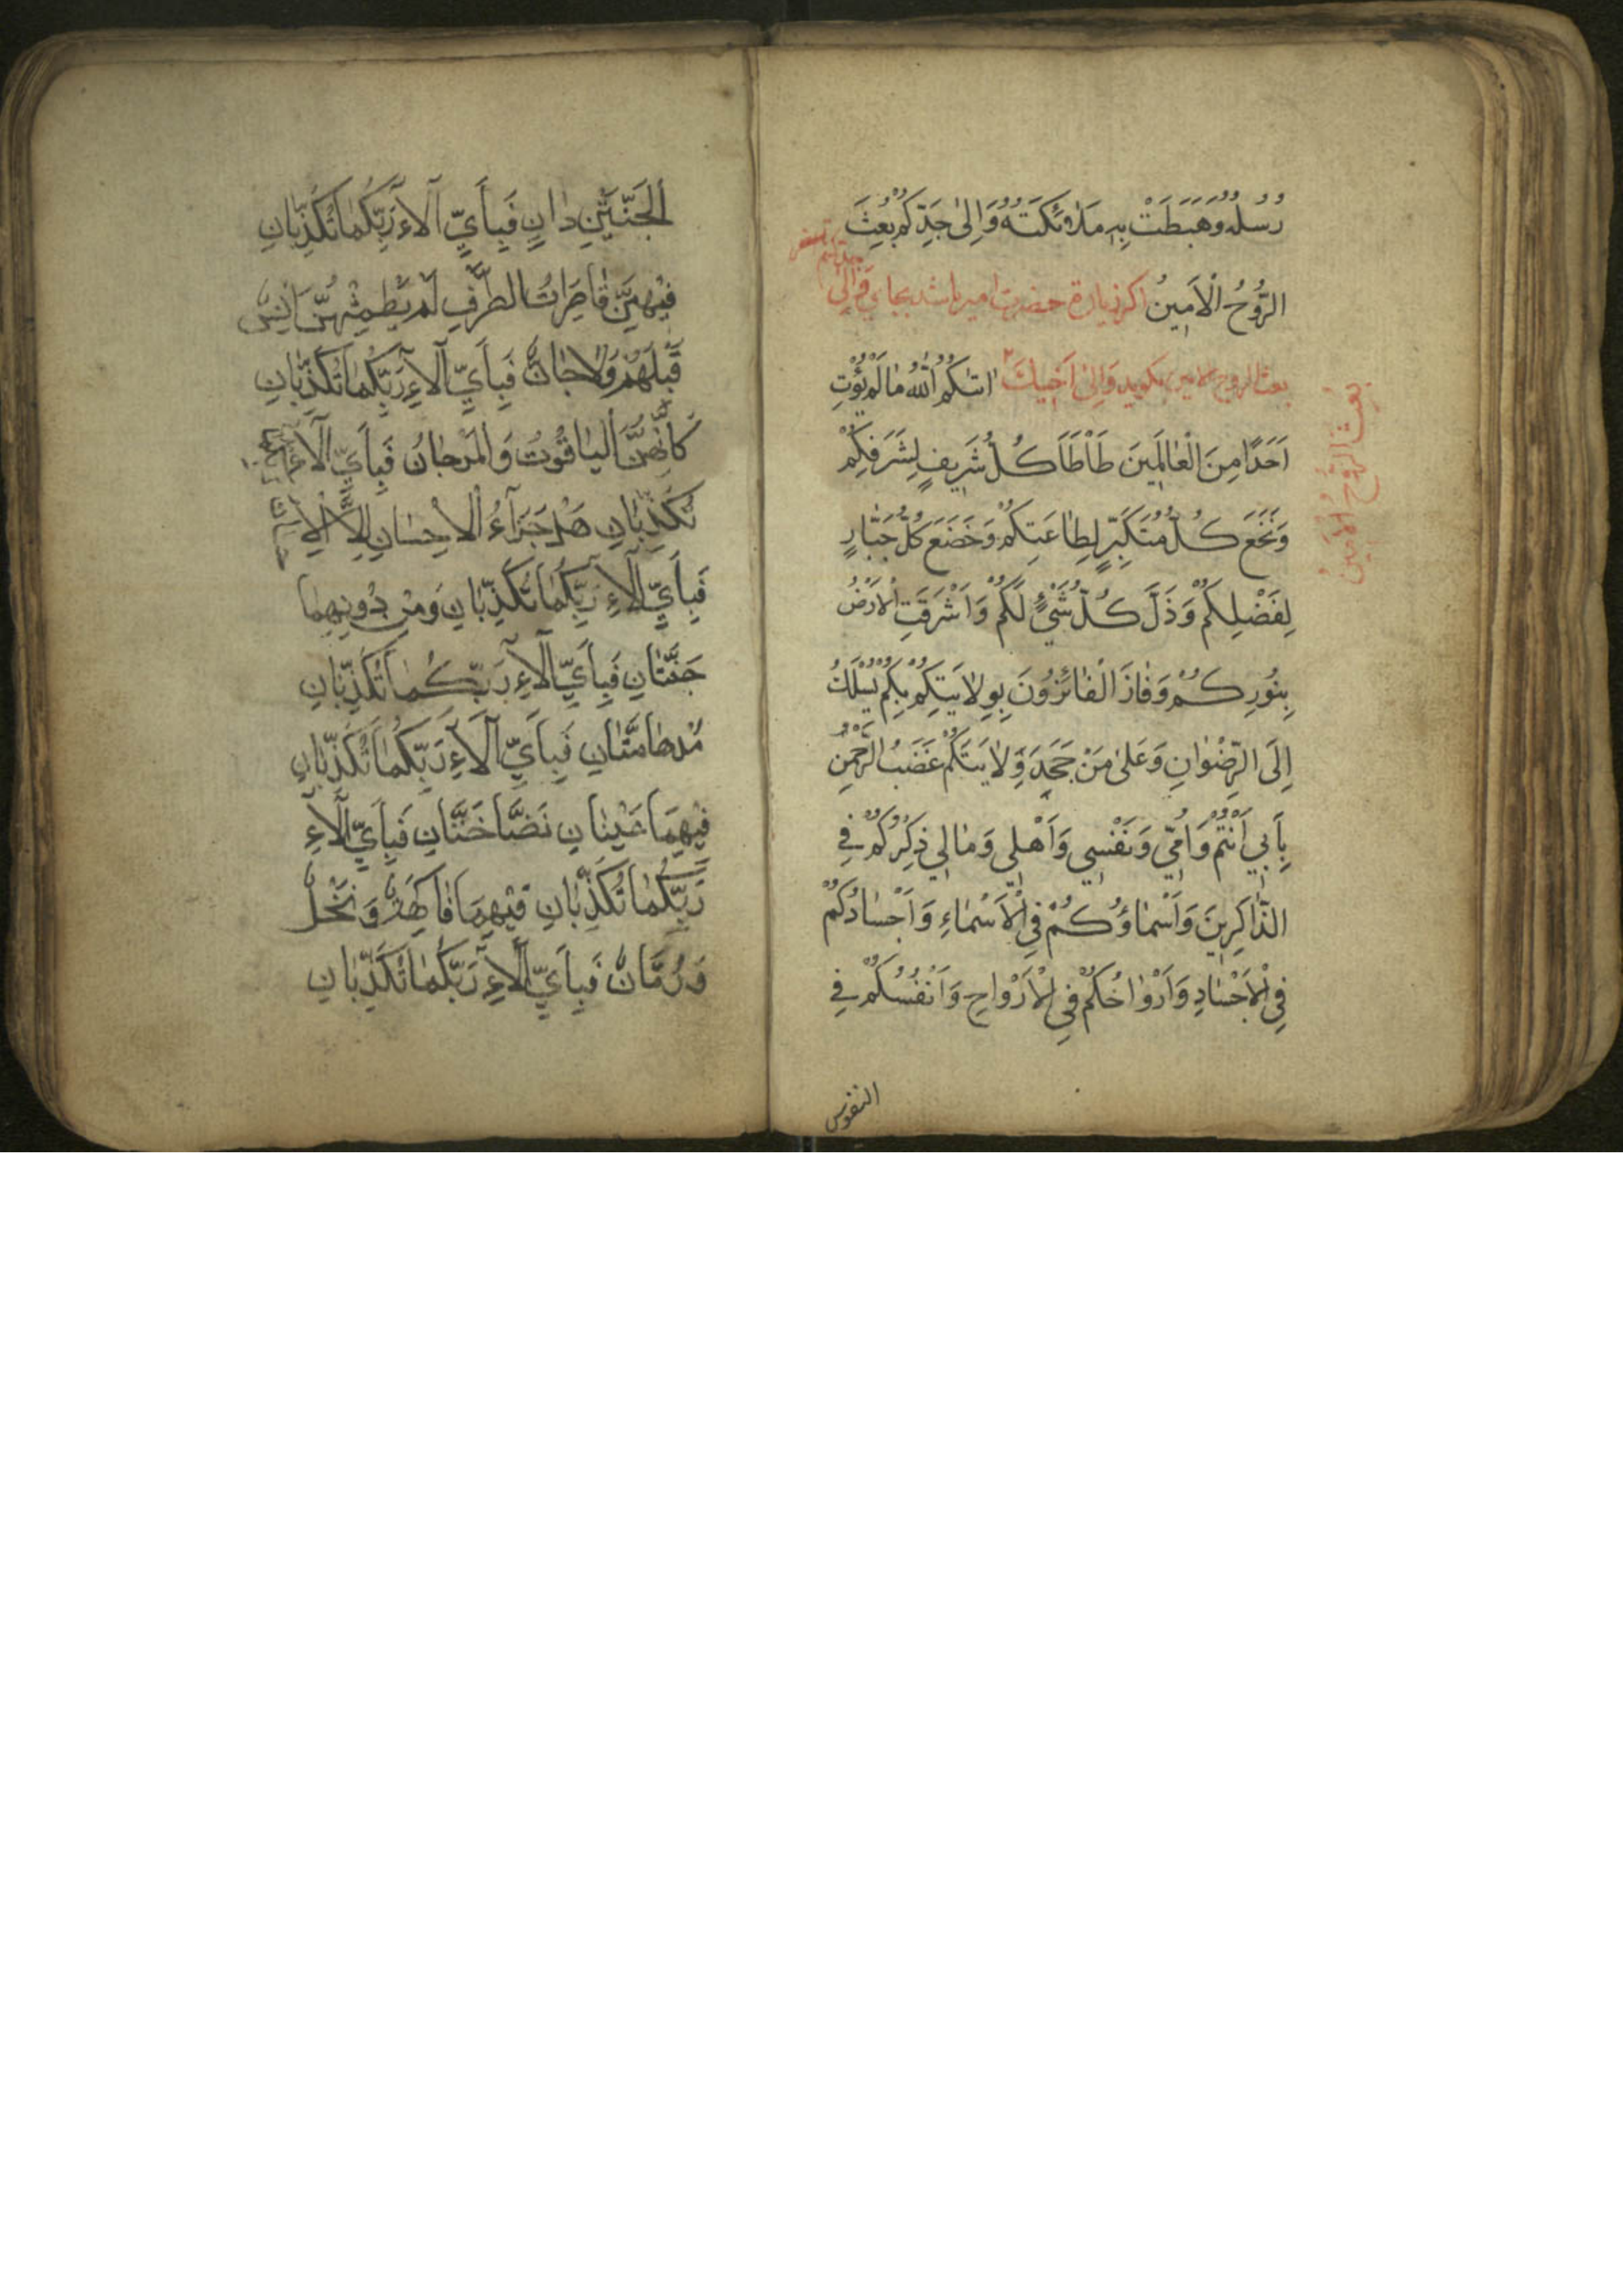 رُسُلُهُ وَهَبَطَتْ بِهِ مَلٰائِكَتُهُ وَاِلىٰ جَدِّكُمْ بُعِثَ
الرُّوحُ الْاَمِينُ اكر زيارة حضرت امير باشد بجاي وَاِلىٰ
جدكم
بعث الروح الامين بكويد وَاِلىٰ اَخِيكَ اتٰىكُمُ اللّٰهُ مٰا لَمْ يُؤْتِ
بُعِثَ الرُّوحُ الْاَمِينُ
اَحَدًا مِنَ الْعٰالَمِينَ طَأْطَأَ كُلُّ شَرِيفٍ لِشَرَفِكُمْ
وَنَخَعَ كُلُّ مُتَكَبِّرٍ لِطٰاعَتِكُمْ وَخَضَعَ كُلُّ جَبّٰارٍ
لِفَضْلِكُمْ وَذَلَّ كُلُّ شَيْءٍ لَكُمْ وَاَشْرَقَتِ الْاَرْضُ
بِنُورِكُمْ وَفٰازَ الْفٰائِزُونَ بِوِلٰايَتِكُمْ بِكُمْ يُسْلَكُ
اِلَى الرِّضْوٰانِ وَعَلىٰ مَنْ جَحَدَ وِلٰايَتَكُمْ غَضَبُ الرَّحْمٰنِ
بِاَبِي اَنْتُمْ وَاُمِّي وَنَفْسِي وَاَهْلِي وَمٰالِي ذِكْرُكُمْ فِي
الذّٰاكِرِينَ وَاَسْمٰاؤُكُمْ فِي الْاَسْمٰاءِ وَاَجْسٰادُكُمْ
فِي الْاَجْسٰادِ وَاَرْوٰاحُكُمْ فِي الْاَرْوٰاحِ وَاَنْفُسُكُمْ فِي
النفوس
اَلْجَنَّتَيْنِ دٰانٍ فَبِاَيِّ آلٰاءِ رَبِّكُمٰا تُكَذِّبٰانِ
فِيهِنَّ قٰاصِرٰاتُ الطَّرْفِ لَمْ يَطْمِثْهُنَّ اِنْسٌ
قَبْلَهُمْ وَلٰا جٰانٌّ فَبِاَيِّ آلٰاءِ رَبِّكُمٰا تُكَذِّبٰانِ
كَاَنَّهُنَّ الْيٰاقُوتُ وَالْمَرْجٰانُ فَبِاَيِّ آلٰاءِ رَبِّكُمٰا
تُكَذِّبٰانِ هَلْ جَزَآءُ الْاِحْسٰانِ اِلَّا الْاِحْسٰانُ
فَبِاَيِّ آلٰاءِ رَبِّكُمٰا تُكَذِّبٰانِ وَمِنْ دُونِهِمٰا
جَنَّتٰانِ فَبِاَيِّ آلٰاءِ رَبِّكُمٰا تُكَذِّبٰانِ
مُدْهٰامَّتٰانِ فَبِاَيِّ آلٰاءِ رَبِّكُمٰا تُكَذِّبٰانِ
فِيهِمَا عَيْنٰانِ نَضَّاخَتٰانِ فَبِاَيِّ آلٰاءِ
رَبِّكُمٰا تُكَذِّبٰانِ فِيهِمَا فٰاكِهَةٌ وَنَخْلٌ
وَرُمَّانٌ فَبِاَيِّ آلٰاءِ رَبِّكُمٰا تُكَذِّبٰانِ